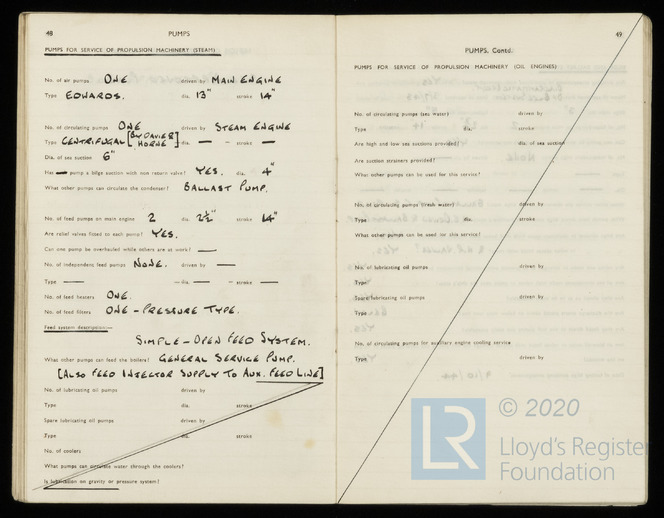 48
PUMPS
PUMPS FOR SERVICE OF PROPULSION MACHINERY (STEAM)
No. of air pumps ONE driven by MAIN ENGINE
Type EDWARDS. dia. 13" stroke 14"
No. of circulating pumps ONE driven by STEAM ENGINE
Type CENTRIFUGAL [BY DAVIER HORNE] dia. — stroke —
Dia. of sea suction 6"
Has — pump a bilge suction with non return valve? YES. dia. 4"
What other pumps can circulate the condenser? BALLAST PUMP.
No. of feed pumps on main engine 2 dia. 2½" stroke 14"
Are relief valves fitted to each pump? YES.
Can one pump be overhauled while others are at work? —
No. of independent feed pumps NONE. driven by —
Type — dia. — stroke —
No. of feed heaters ONE.
No. of feed filters ONE - PRESSURE TYPE.
Feed system description—
SIMPLE-OPEN FEED SYSTEM.
What other pumps can feed the boilers? GENERAL SERVICE PUMP.
[ALSO FEED INJECTOR SUPPLY TO AUX. FEED LINE]
No. of lubricating oil pumps driven by
Type dia. stroke
Spare lubricating oil pumps driven by
Type dia. stroke
No. of coolers
What pumps can circulate water through the coolers?
Is lubrication on gravity or pressure system?
49
PUMPS, Contd.
PUMPS FOR SERVICE OF PROPULSION MACHINERY (OIL ENGINES)
No. of circulating pumps (sea water) driven by
Type dia. stroke
Are high and low sea suctions provided? dia. of sea suction
Are suction strainers provided?
What other pumps can be used for this service?
No. of circulating pumps (fresh water) driven by
Type dia. stroke
What other pumps can be used for this service?
No. of lubricating oil pumps driven by
Type
Spare lubricating oil pumps driven by
Type
No. of circulating pumps for auxiliary engine cooling service
Type driven by
LR
© 2020
Lloyd's Register
Foundation